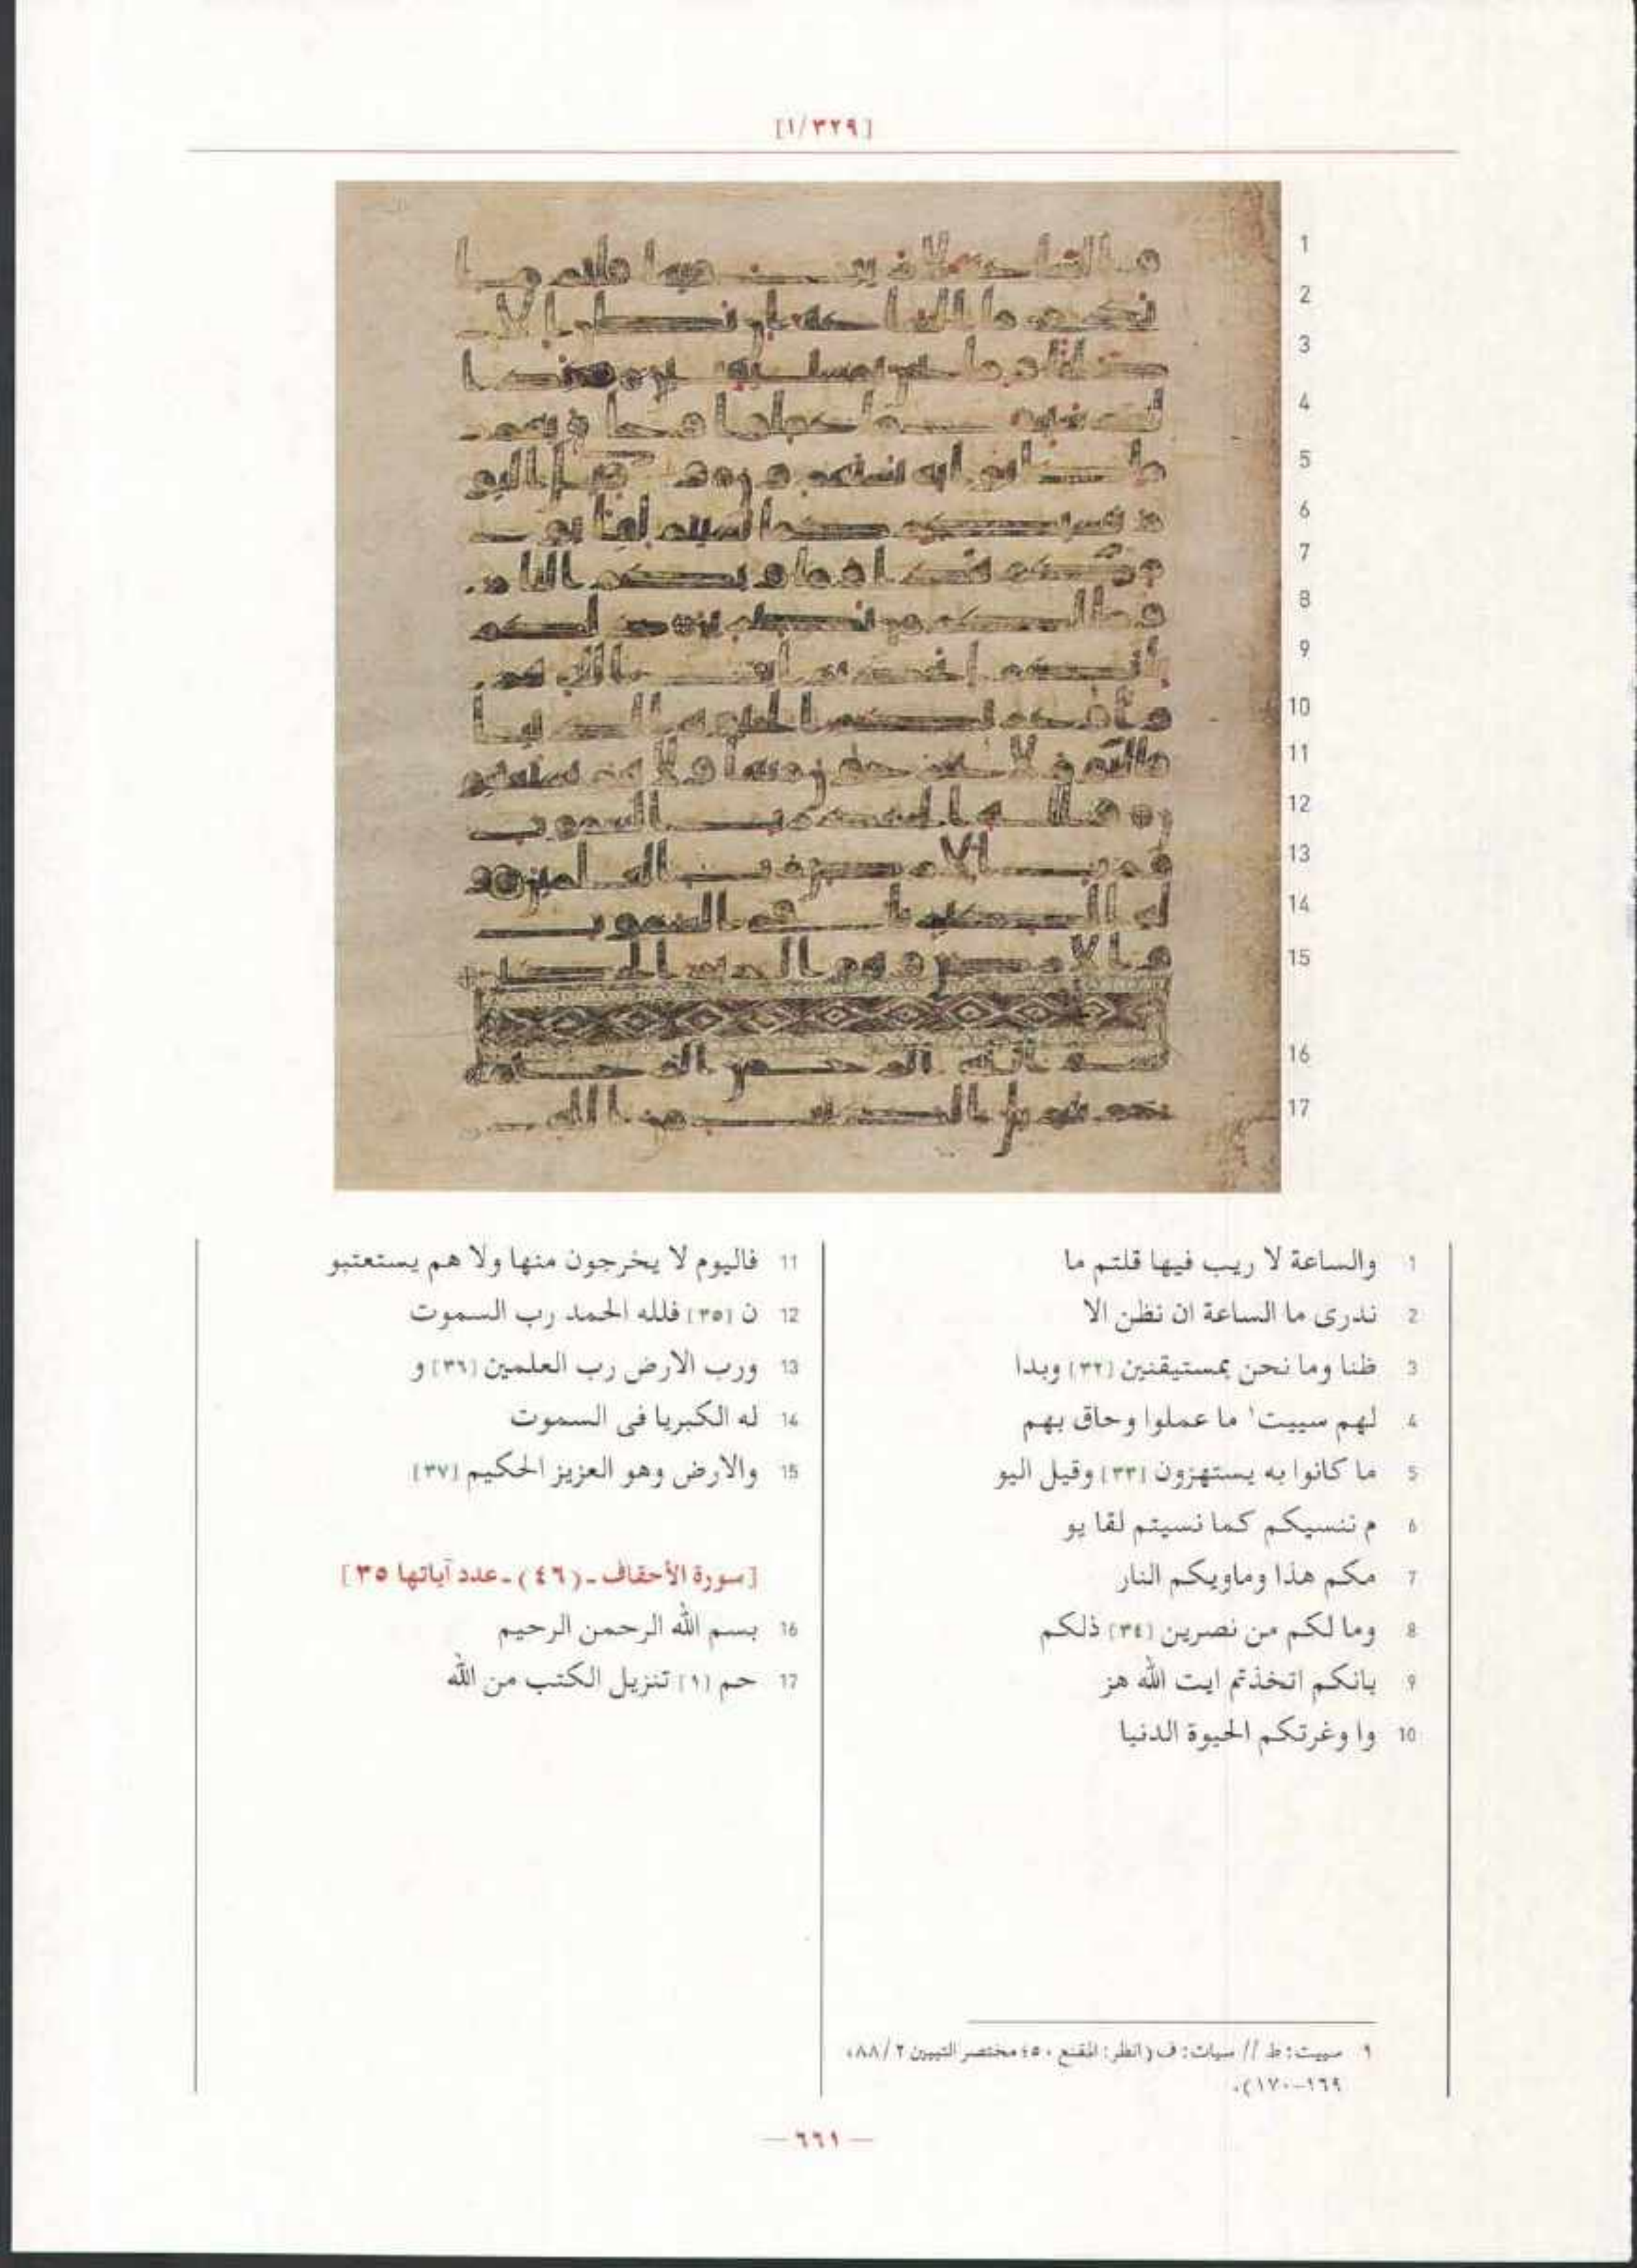 [١/٣٢٩]
1 والساعة لا ريب فيها قلتم ما
2 ندرى ما الساعة ان نظن الا
3 ظنا وما نحن بمستيقنين [٣٢] وبدا
4 لهم سييت¹ ما عملوا وحاق بهم
5 ما كانوا به يستهزون [٣٣] وقيل اليو
6 م ننسيكم كما نسيتم لقا يو
7 مكم هذا وماويكم النار
8 وما لكم من نصرين [٣٤] ذلكم
9 بانكم اتخذتم ايت الله هز
10 وا وغرتكم الحيوة الدنيا
11 فاليوم لا يخرجون منها ولا هم يستعتبو
12 ن [٣٥] فلله الحمد رب السموت
13 ورب الارض رب العلمين [٣٦] و
14 له الكبريا فى السموت
15 والارض وهو العزيز الحكيم [٣٧]
[سورة الأحقاف - (٤٦) - عدد آياتها ٣٥]
16 بسم الله الرحمن الرحيم
17 حم [١] تنزيل الكتب من الله
١ سييت: ط // سيات: ف (انظر: المقنع ٥٠؛ مختصر التبيين ٢/٨٨،
١٦٩-١٧٠).
— ٦٦١ —